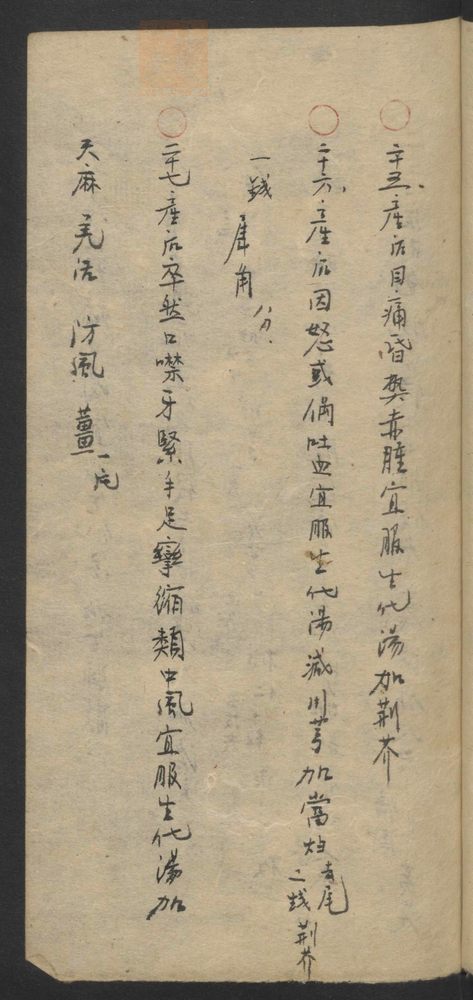 二十五、產后目痛昏赤腫宜服生化湯加荆芥
二十六、產后因怒或吐血宜服生化湯減川芎加當归去尾二錢荆芥
一錢 犀角八分、
二十七產后卒然口噤牙緊手足攣縮類中風宜服生化湯加
天麻 羌活 防風 薑一片